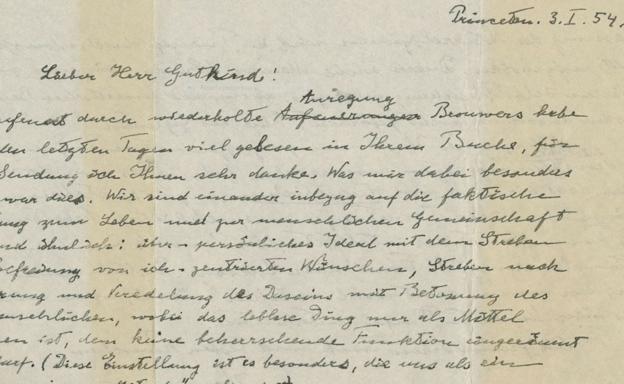 Princeton. 3. I. 54.
Lieber Herr Gutkind!
Anregung
angefeuert durch wiederholte Aufmunterungen Brouwers habe
den letzten Tagen viel gelesen in Ihrem Buche, für
Sendung ich Ihnen sehr danke. Was mir dabei besonders
war dies. Wir sind einander inbezug auf die faktische
ung zum Leben und zur menschlichen Gemeinschaft
nd ähnlich: über-persönliches Ideal mit dem Streben
Befreiung von ich-zentrierten Wünschen, Streben nach
rung und Veredelung des Daseins mit Betonung des
menschlichen, wobei das leblose Ding nur als Mittel
en ist, dem keine beherrschende Funktion eingeräumt
arf. (Diese Einstellung ist es besonders, die uns als ein